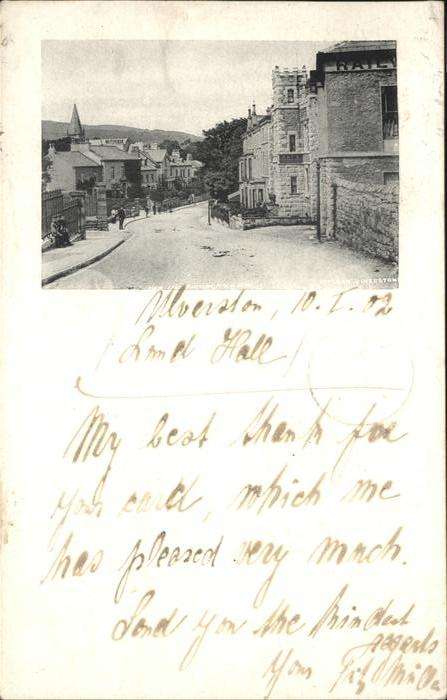 RAILW
ULVERSTON
Ulverston, 10.I.02
(Lund Hall)
My best thank for
your card, which me
has pleased very much.
Send you the kindest
regards
Your